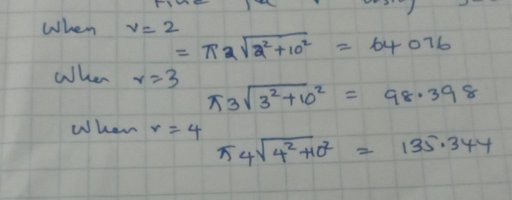 When r=2
= π2√2²+10² = 64 076
When r=3
π3√3²+10² = 98.398
When r=4
π4√4²+10² = 135.344